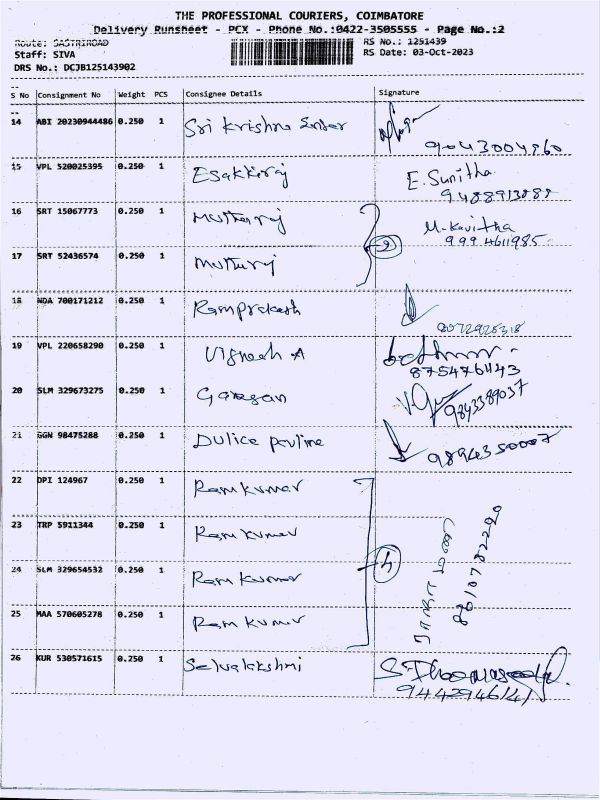 THE PROFESSIONAL COURIERS, COIMBATORE
Delivery Runsheet - PCX - Phone No.:0422-3505555 - Page No.:2
Route: SASTRIROAD
RS No.: 1251439
Staff: SIVA
RS Date: 03-Oct-2023
DRS No.: DCJB125143902
S No Consignment No Weight PCS Consignee Details Signature
14 ABI 20230944486 0.250 1 Sri Krishna
9043004960
15 VPL 520025395 0.250 1 Esakkiraj E. Sunitha
9488913088
16 SRT 15067773 0.250 1 Mutturaj M. Kavitha
9994611985
2
17 SRT 52436574 0.250 1 Mutturaj
18 NDA 700171212 0.250 1 Ramprakash
8072928318
19 VPL 220658290 0.250 1 Vignesh A
875476443
20 SLM 329673275 0.250 1 Ganesan
9843389037
21 GGN 98475288 0.250 1 Dulice pauline
9894350007
22 DPI 124967 0.250 1 Ram kumar
23 TRP 5911344 0.250 1 Ram kumar
4
8610782290
24 SLM 329654532 0.250 1 Ram kumar
25 MAA 570605278 0.250 1 Ram kumar
26 KUR 530571615 0.250 1 Selvalakshmi
9442946141